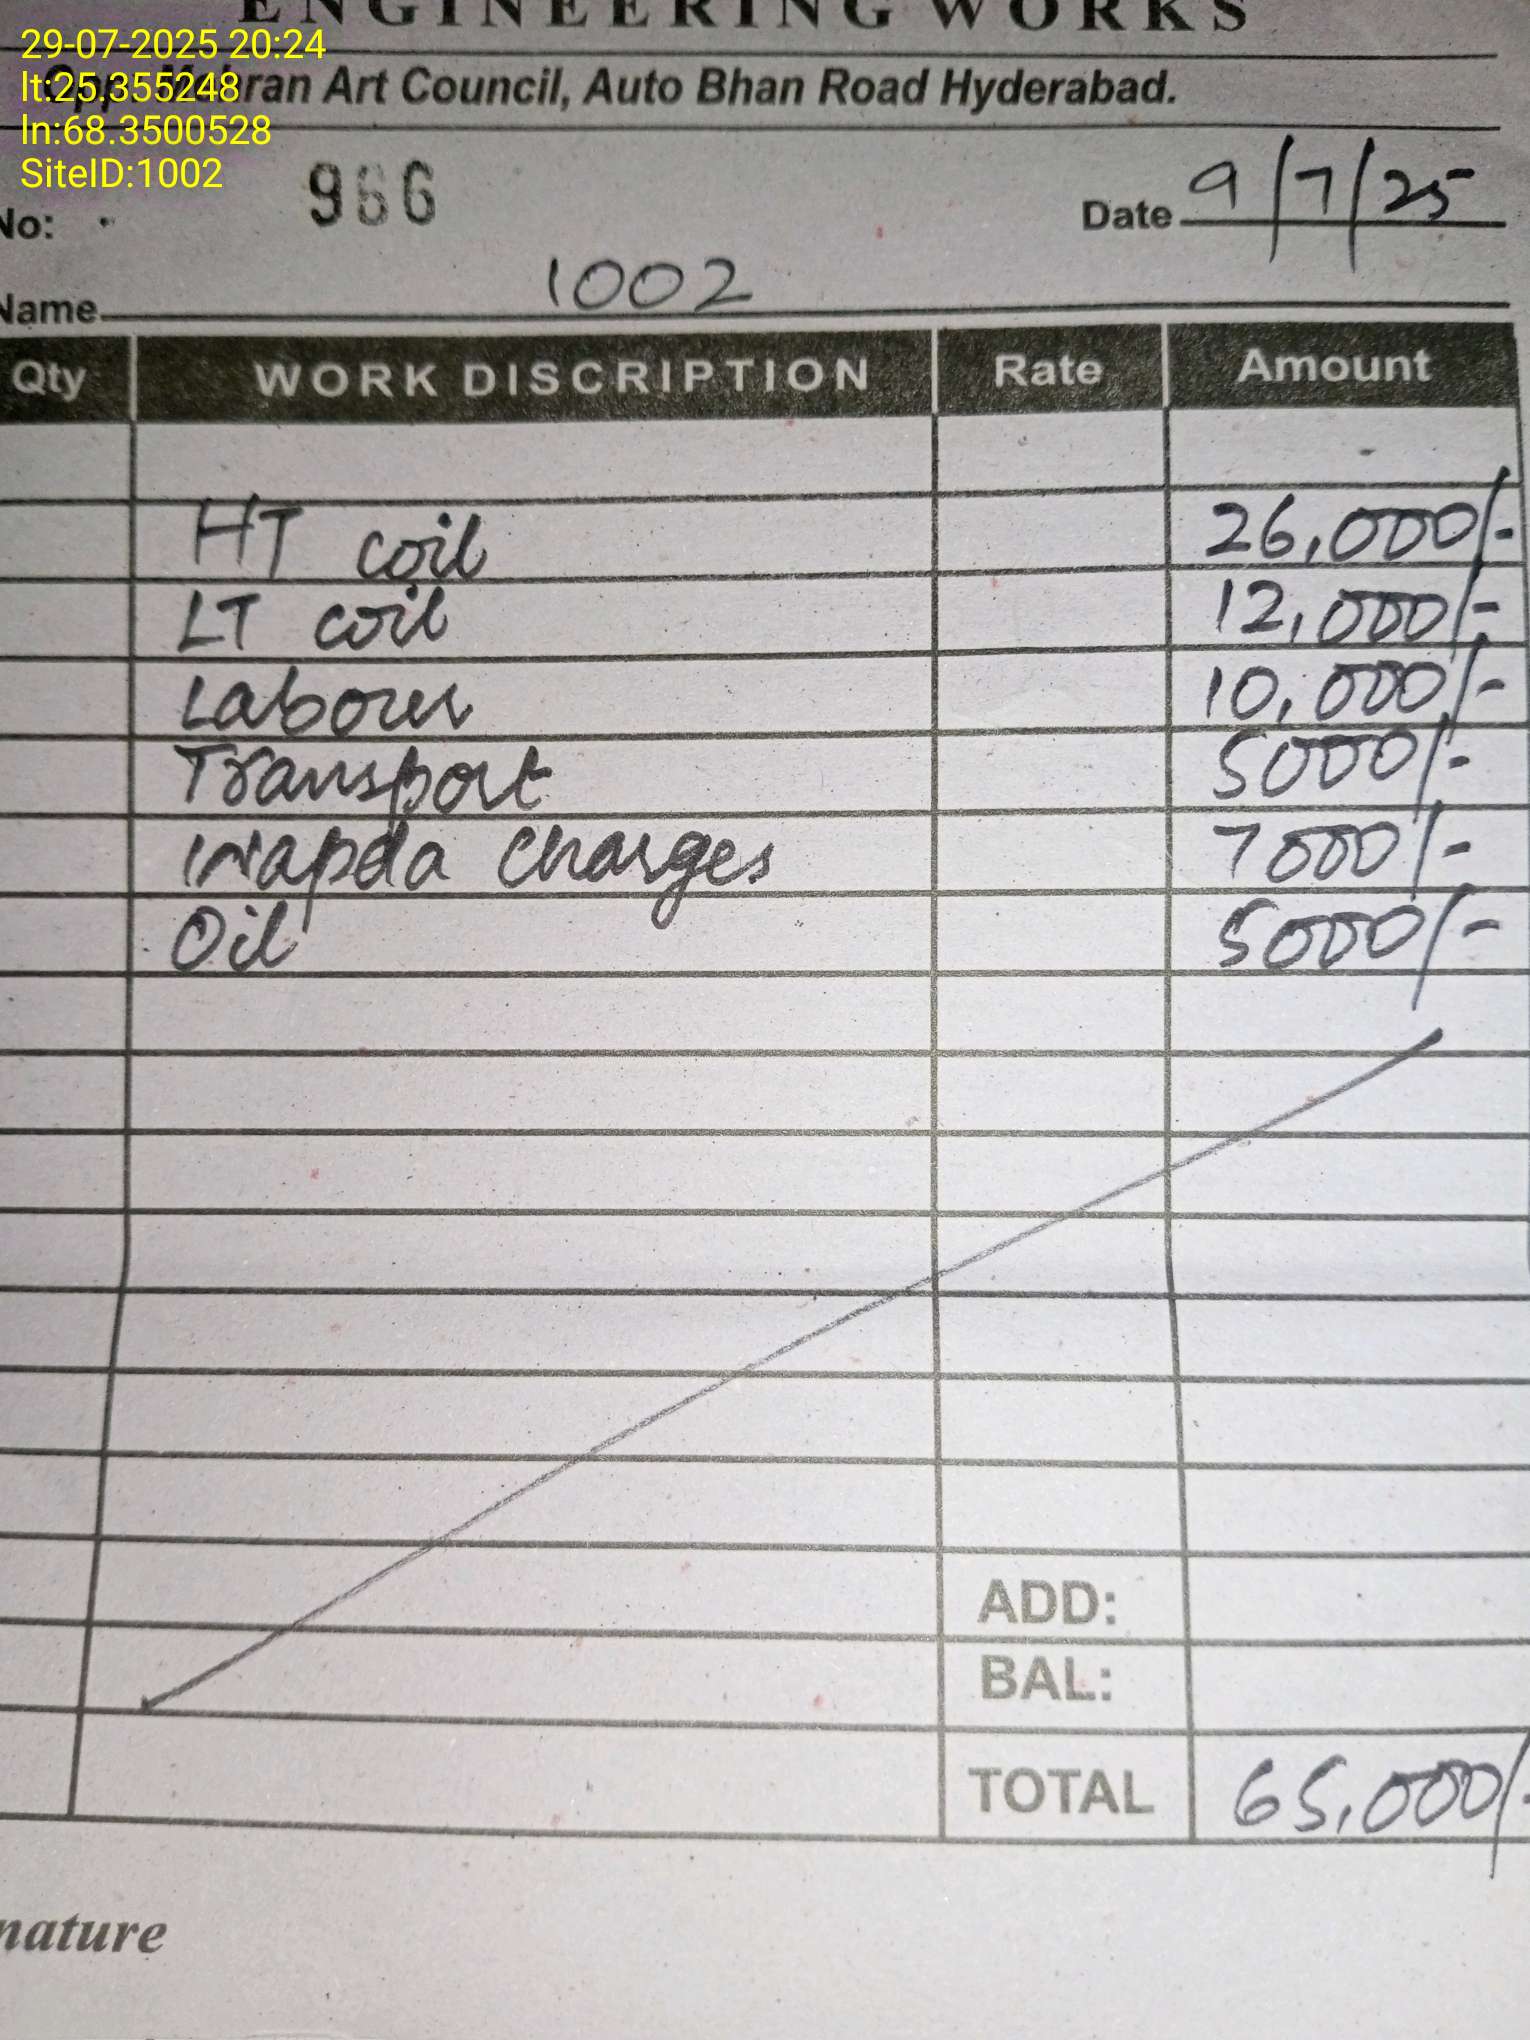 ENGINEERING WORKS
29-07-2025 20:24
lt:25.355248
ln:68.3500528
SiteID:1002
Opp. Mehran Art Council, Auto Bhan Road Hyderabad.
No: 966
Date 9/7/25
Name 1002
Qty WORK DISCRIPTION Rate Amount
HT coil 26,000/-
LT coil 12,000/-
Labour 10,000/-
Transport 5000/-
Wapda charges 7000/-
Oil 5000/-
ADD:
BAL:
TOTAL 65,000/-
nature